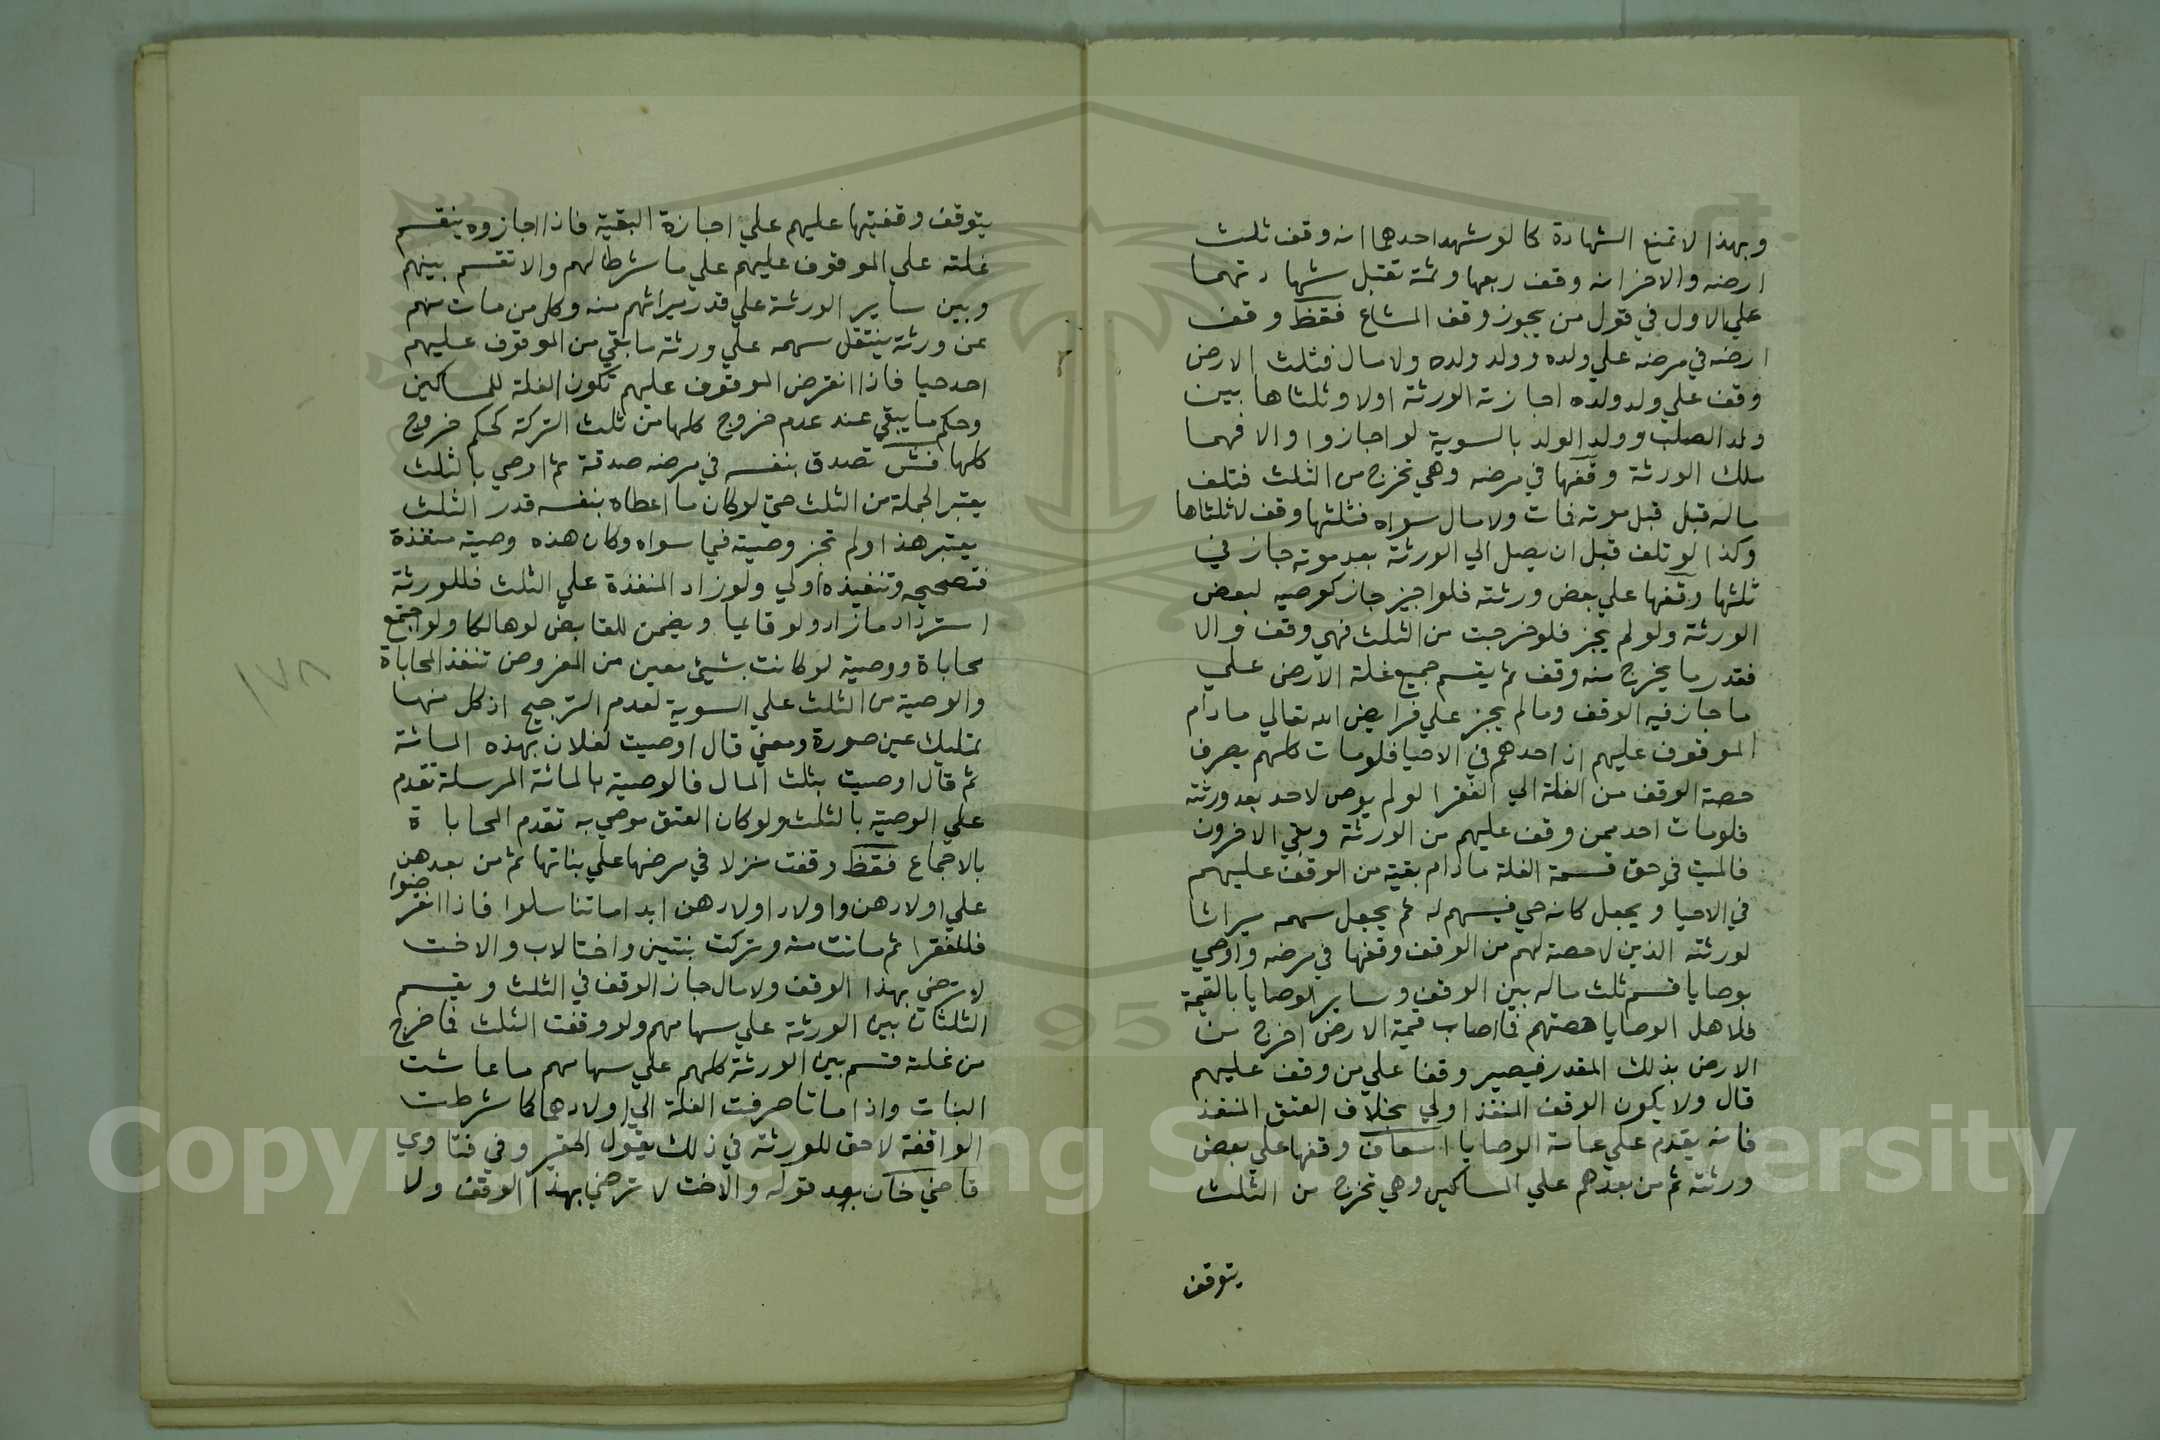 وبهذا لا تمنع الشهادة كما لو شهد احدهما انه وقف ثلث
ارضه والاخر انه وقف ربعها وثمة تقبل شهادتهما
علي الاول في قول من يجوز وقف المشاع فقظ وقف
ارضه في مرضه علي ولده وولد ولده ولا مال فثلث الارض
وقف علي ولد ولده اجازته الورثة اولا وثلثاها بين
ولد الصلب وولد الولد بالسوية لو اجازوا والا فهما
ملك الورثة وقفها في مرضه وهي تخرج من الثلث فتلف
ماله قبل قبل موته فمات ولا مال سواه فثلثها وقف لا ثلثاها
وكذا لو تلف قبل ان يصل الي الورثة بعد موته جاز في
ثلثها وقفها علي بعض ورثته فلو اجيز جاز كوصيه لبعض
الورثة ولو لم يجز فلو خرجت من الثلث فهي وقف والا
فقدر ما يخرج منه وقف ثم يقسم جميع غلة الارض علي
ما جاز فيه الوقف وما لم يجز علي فرايض الله تعالي مادام
الموقوف عليهم او احدهم في الاحيا فلو مات كلهم يصرف
حصة الوقف من الغلة الي الفقرا لو لم يوص لاحد بعد ورثته
فلو مات احد ممن وقف عليهم من الورثة وبقي الاخرون
فالميت في حق قسمة الغلة مادام بقية من الوقف عليهم
في الاحيا ويجعل كانه حي فيسهم له ثم يجعل سهمه ميراثا
لورثته الذين لا حصة لهم من الوقف وقفها في مرضه واوصي
بوصايا قسم ثلث ماله بين الوقف وساير الوصايا بالقيمة
فلاهل الوصايا حصتهم فما اصاب قيمة الارض اخرج من
الارض بذلك المقدر فيصير وقفا علي من وقف عليهم
قال ولا يكون الوقف المنفذ اولي بخلاف العتق المنفذ
فانه يقدم علي عامة الوصايا اسعاف وقفها علي بعض
ورثته ثم من بعدهم علي المساكين وهي تخرج من الثلث
يتوقف
يتوقف وقفيتها عليهم علي اجازة البقية فاذا اجازوه ينقسم
غلته علي الموقوف عليهم علي ما شرط لهم والا تقسم بينهم
وبين ساير الورثة علي قدر ميراثهم منه وكل من مات منهم
عن ورثة ينتقل سهمه علي ورثته ما بقي من الموقوف عليهم
احد حيا فاذا انقرض الموقوف عليهم تكون الغلة للمساكين
وحكم ما يبقي عند عدم خروج كلها من ثلث التركة كحكم خروج
كلها فش تصدق بنفسه في مرضه صدقة ثم اوصي بالثلث
يعتبر الجملة من الثلث حتي لو كان ما اعطاه بنفسه قدر الثلث
يعتبر هذا ولم تجز وصيته فيما سواه وكان هذه وصية منفذة
فتصحيحه وتنفيذه اولي ولو زاد المنفذة علي الثلث فللورثة
استرداد ما زاد ولو قايما ويضمن للقابض لو هالكا ولو اجتمع
محاباة ووصية لو كانت بشيئ معين من المعروض تنفذ المحاباة
والوصية من الثلث علي السوية لعدم الترجيح اذ كل منهما
تمليك عين صورة ومعني قال اوصيت لفلان بهذه المائة
ثم قال اوصيت بثلث المال فالوصية بالمائة المرسلة تقدم
علي الوصية بالثلث ولو كان العتق موصي به تقدم المحاباة
بالاجماع فقظ وقفت منزلا في مرضها علي بناتها ثم من بعدهن
علي اولادهن واولاد اولادهن ابدا ما تناسلوا فاذا انقرضوا
فللفقرا ثم ماتت منه وتركت بنتين واختا لاب والاخت
لا ترضي بهذا الوقف ولا مال جاز الوقف في الثلث ويقسم
الثلثان بين الورثة علي سهامهم ولو وقفت الثلث فما خرج
من غلته قسم بين الورثة كلهم علي سهامهم ما عاشت
البنات واذا ماتا صرفت الغلة الي اولادهما كما شرطت
الواقفة لا حق للورثة في ذلك يقول الحقير وفي فتاوي
قاضي خان بعد قوله والاخت لا ترضي بهذا الوقف ولا
١٧٨
Copyright © King Saud University
1957